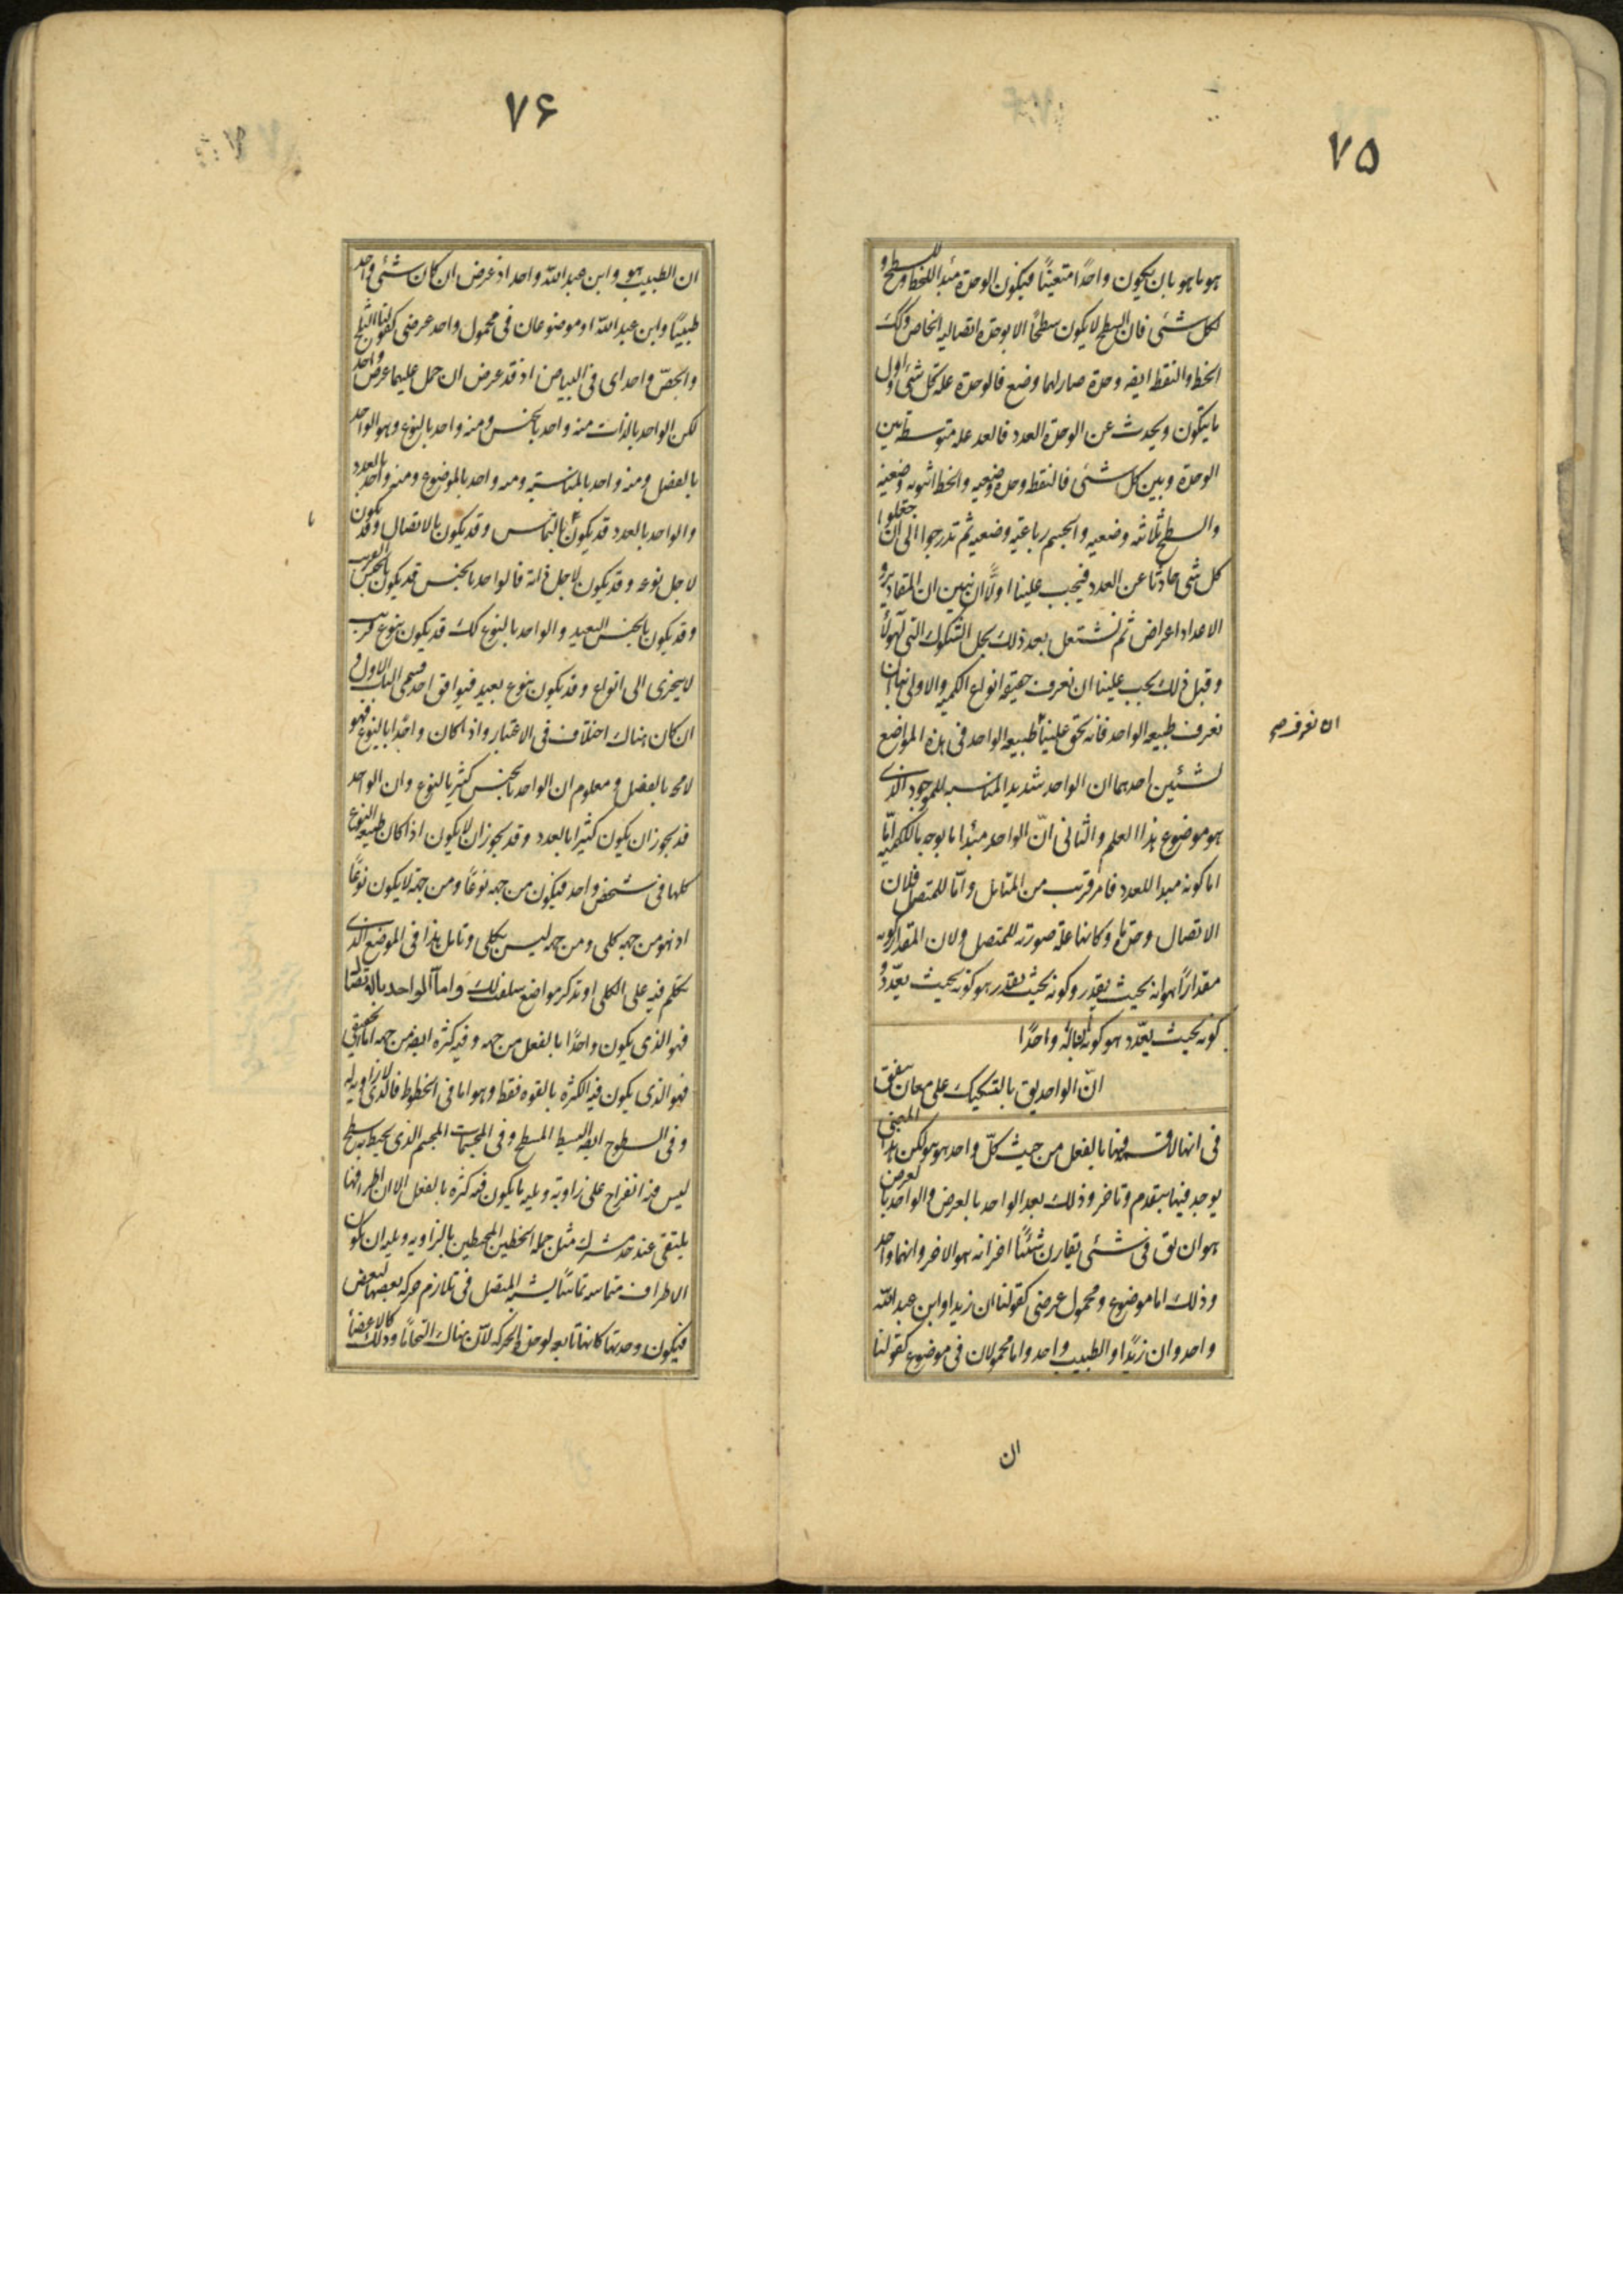 ٧٥
هو ما هو بان يكون واحدًا متعينًا فيكون الوحدة مبدأ للخط و للسطح و
لكل شئى فان السطح لا يكون سطحًا الا بوحدة اتصاليه الخاص وكك
الخط والنقطه ايضه وحدة صار لها وضع فالوحدة علة كل شئى و اول
ما يتكون ويحدث عن الوحدة العدد فالعدد علة متوسطة بين
الوحدة و بين كل شئى فالنقطه وحدة وضعيه والخط اثنويه وضعية
والسطح ثلاثيه وضعيه والجسم رباعيه وضعيه ثم تدرجوا الى ان جعلوا
كل شى حادثا عن العدد فيجب علينا اولًا ان نبين ان المقادير و
الاعداد اعراض ثم نشتغل بعد ذلك بحل الشكوك التى لهولاء
و قبل ذلك يجب علينا ان نعرف حقيقه انواع الكميه والاولى بنا ان
نعرف طبيعه الواحد فانه يحق علينا طبيعه الواحد فى هذه المواضع
ان نعرف صح
لشيئين احدهما ان الواحد شديد المناسبه للموجود الذى
هو موضوع هذا العلم والثانى انّ الواحد مبدأ ما بوجه ما للكميه امّا
اما كونه مبدا للعدد فامر قريب من المتامل وامّا للمتصل فلان
الاتصال وحدة ما و كانها علة صوريه للمتصل ولان المقدار كونه
مقدارًا هو انه بحيث يقدر و كونه بحيث يقدر هو كونه بحيث يعدّ و
كونه بحيث يعدّ هو كونه بحاله واحدًا
انّ الواحد يق بالتشكيك على معان يتفق
فى انها لا قسمه فيها بالفعل من حيث كلّ واحد هو هو لكن هذا المعنى
يوجد فيها بتقدم و تاخر و ذلك بعد الواحد بالعرض والواحد بالعرض
هو ان يق فى شئى يقارن شيئًا اخر انه هو الاخر وانهما واحد
و ذلك اما موضوع و محمول عرضى كقولنا ان زيدا و ابن عبد اللّه
واحد وان زيدًا و الطبيب واحد و اما محمولان فى موضوع كقولنا
ان
٧۶
ان الطبيب هو و ابن عبد اللّه واحد اذ عرض ان كان شئى واحد
طبيبًا و ابن عبد اللّه او موضوعان فى محمول واحد عرضى كقولنا الثلج
والجصّ واحد اى فى البياض اذ قد عرض ان حمل عليهما عرض واحد
لكن الواحد بالذات منه واحد بالجنس و منه واحد بالنوع و هو الواحد
بالفصل و منه واحد بالمناسبة و منه واحد بالموضوع و منه واحد بالعدد
والواحد بالعدد قد يكون بالتماس و قد يكون بالاتصال و قد يكون
لاجل نوعه و قد يكون لاجل ذاته فالواحد بالجنس قد يكون بالجنس القريب
و قد يكون بالجنس البعيد والواحد بالنوع كك قد يكون بنوع قريب
لا يتجزى الى انواع و قد يكون بنوع بعيد فيوافق احد قسمى الباب الاول و
ان كان هناك اختلاف فى الاعتبار و اذا كان واحدًا بالنوع فهو
لامحه بالفصل و معلوم ان الواحد بالجنس كثير بالنوع و ان الواحد
قد يجوز ان يكون كثيرا بالعدد و قد يجوز ان لا يكون اذا كان طبيعه النوع
كلها فى شخص واحد فيكون من جهه نوعًا و من جهة لا يكون نوعًا
اذ هو من جهه كلى و من جهه ليس بكلى و تامل هذا فى الموضع الذى
نتكلم فيه على الكلى او تذكر مواضع سلفت لك و امّا الواحد بالاتصال
فهو الذى يكون واحدًا بالفعل من جهه و فيه كثره ايضه من جهه اما الحقيقى
فهو الذى يكون فيه الكثره بالقوه فقط و هو اما فى الخطوط فالذى لا زاويه له
و فى السطوح ايضه البسيط المسطح و فى المجسمات المجسم الذى يحيط به سطح
ليس فيه انفراج على زاوية و يليه ما يكون فيه كثره بالفعل الا ان اطرافها
يلتقى عند حد مشترك مثل جمله الخطين المحيطين بالزاويه و يليه ان يكون
الاطراف متماسه تماسًا يشبه المتصل فى تلازم حركه بعضها لبعض
فيكون وحدتها كانها تابعه لوحدة الحركه لان هناك التحامًا و ذلك كالاعضأ